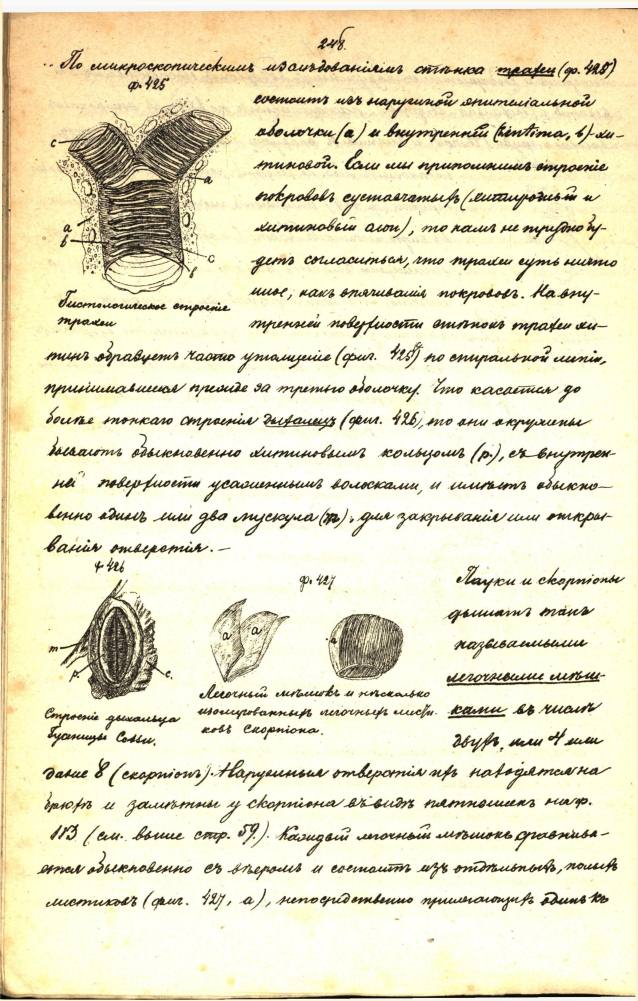 248.
По микроскопическимъ изслѣдованіямъ стѣнка трахеи (ф. 425)
ф. 425
состоитъ изъ наружной эпителіальной
оболочки (а) и внутренней (intima, в) хи-
тиновой. Если мы припомнимъ строеніе
покрововъ суставчатыхъ (хитинородный и
хитиновый слои), то намъ не трудно бу-
детъ согласиться, что трахеи суть ничто
иное, какъ впячиванія покрововъ. На вну-
тренней поверхности стѣнокъ трахеи хи-
c
a
a
b
c
b
Гистологическое строеніе
трахеи
тинъ образуетъ часто утолщеніе (фиг. 425) по спиральной линіи,
принимавшееся прежде за третью оболочку. Что касается до
болѣе тонкаго строенія дыхалецъ (фиг. 426), то они окружены
бываютъ обыкновенно хитиновымъ кольцомъ (р.), съ внутрен-
ней поверхности усаженнымъ волосками, и имѣютъ обыкно-
венно одинъ или два мускула (m), для закрыванія или откры-
ванія отверстія. —
ф 426
m
p
c.
Строеніе дыхальца
гусеницы Cossus.
ф. 427
a
a
Легочный мѣшокъ и нѣсколько
изолированныхъ легочныхъ листи-
ковъ Скорпіона.
Пауки и скорпіоны
дышатъ такъ
называемыми
легочными мѣш-
ками въ числѣ
двухъ, или 4 или
даже 8 (скорпіонъ). Наружныя отверстія ихъ находятся на
брюхѣ и замѣтны у скорпіона въ видѣ пятнышекъ на ф.
113 (см. выше стр. 59.). Каждый легочный мѣшокъ сравнива-
ется обыкновенно съ вѣеромъ и состоитъ изъ отдѣльныхъ, полыхъ
листиковъ (фиг. 427, а), непосредственно прилегающихъ одинъ къ